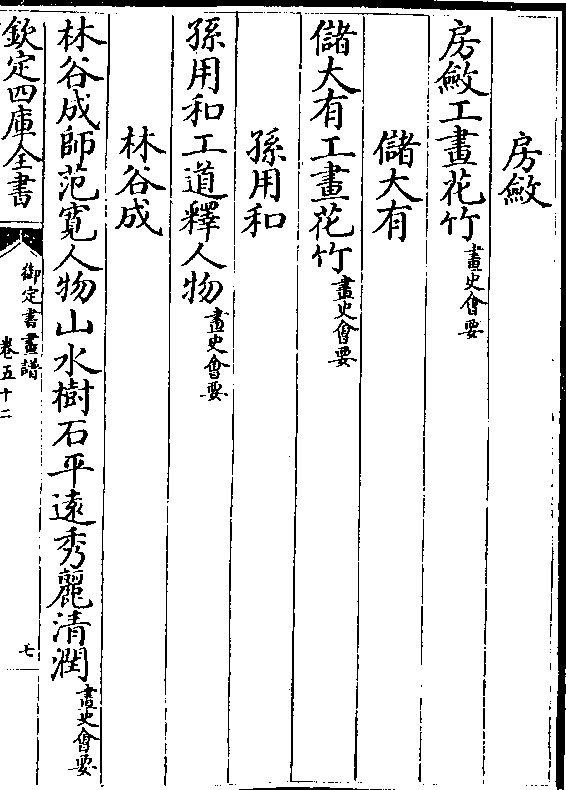 房斂
房斂工畫花竹畫史會要
儲大有
儲大有工畫花竹畫史會要
孫用和
孫用和工道釋人物畫史會要
林谷成
林谷成師范寬人物山水樹石平遠秀麗清潤畫史會要
欽定四庫全書
御定書畫譜
卷五十二
七